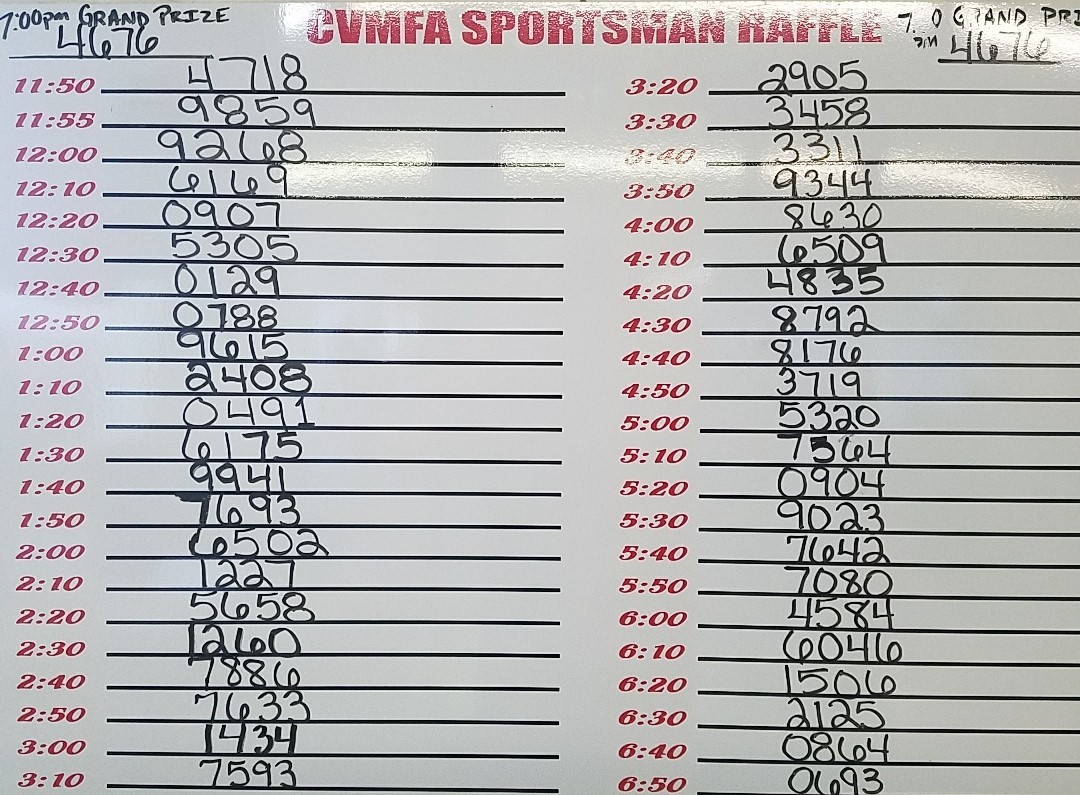 7:00pm GRAND PRIZE
4676
CVMFA SPORTSMAN RAFFLE
GRAND
4676
11:50 4718
11:55 9859
12:00 9268
12:10 6169
12:20 0907
12:30 5305
12:40 0129
12:50 0788
1:00 9615
1:10 2408
1:20 0491
1:30 6175
1:40 9941
1:50 7693
2:00 6502
2:10 1227
2:20 5658
2:30 1260
2:40 7886
2:50 7633
3:00 1434
3:10 7593
3:20 2905
3:30 3458
3:40 3311
3:50 9344
4:00 8630
4:10 6509
4:20 4835
4:30 8792
4:40 8176
4:50 3719
5:00 5320
5:10 7564
5:20 0904
5:30 9023
5:40 7642
5:50 7080
6:00 4584
6:10 6046
6:20 1506
6:30 2125
6:40 0864
6:50 0693